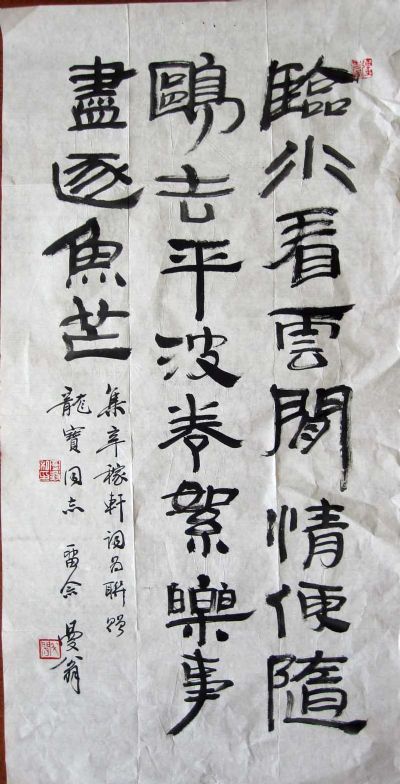 臨水看雲閒情便隨
鷗去平波卷絮樂事
盡逐魚芒
集辛稼軒詞為聯贈
龍寶同志 畱念 曼翁